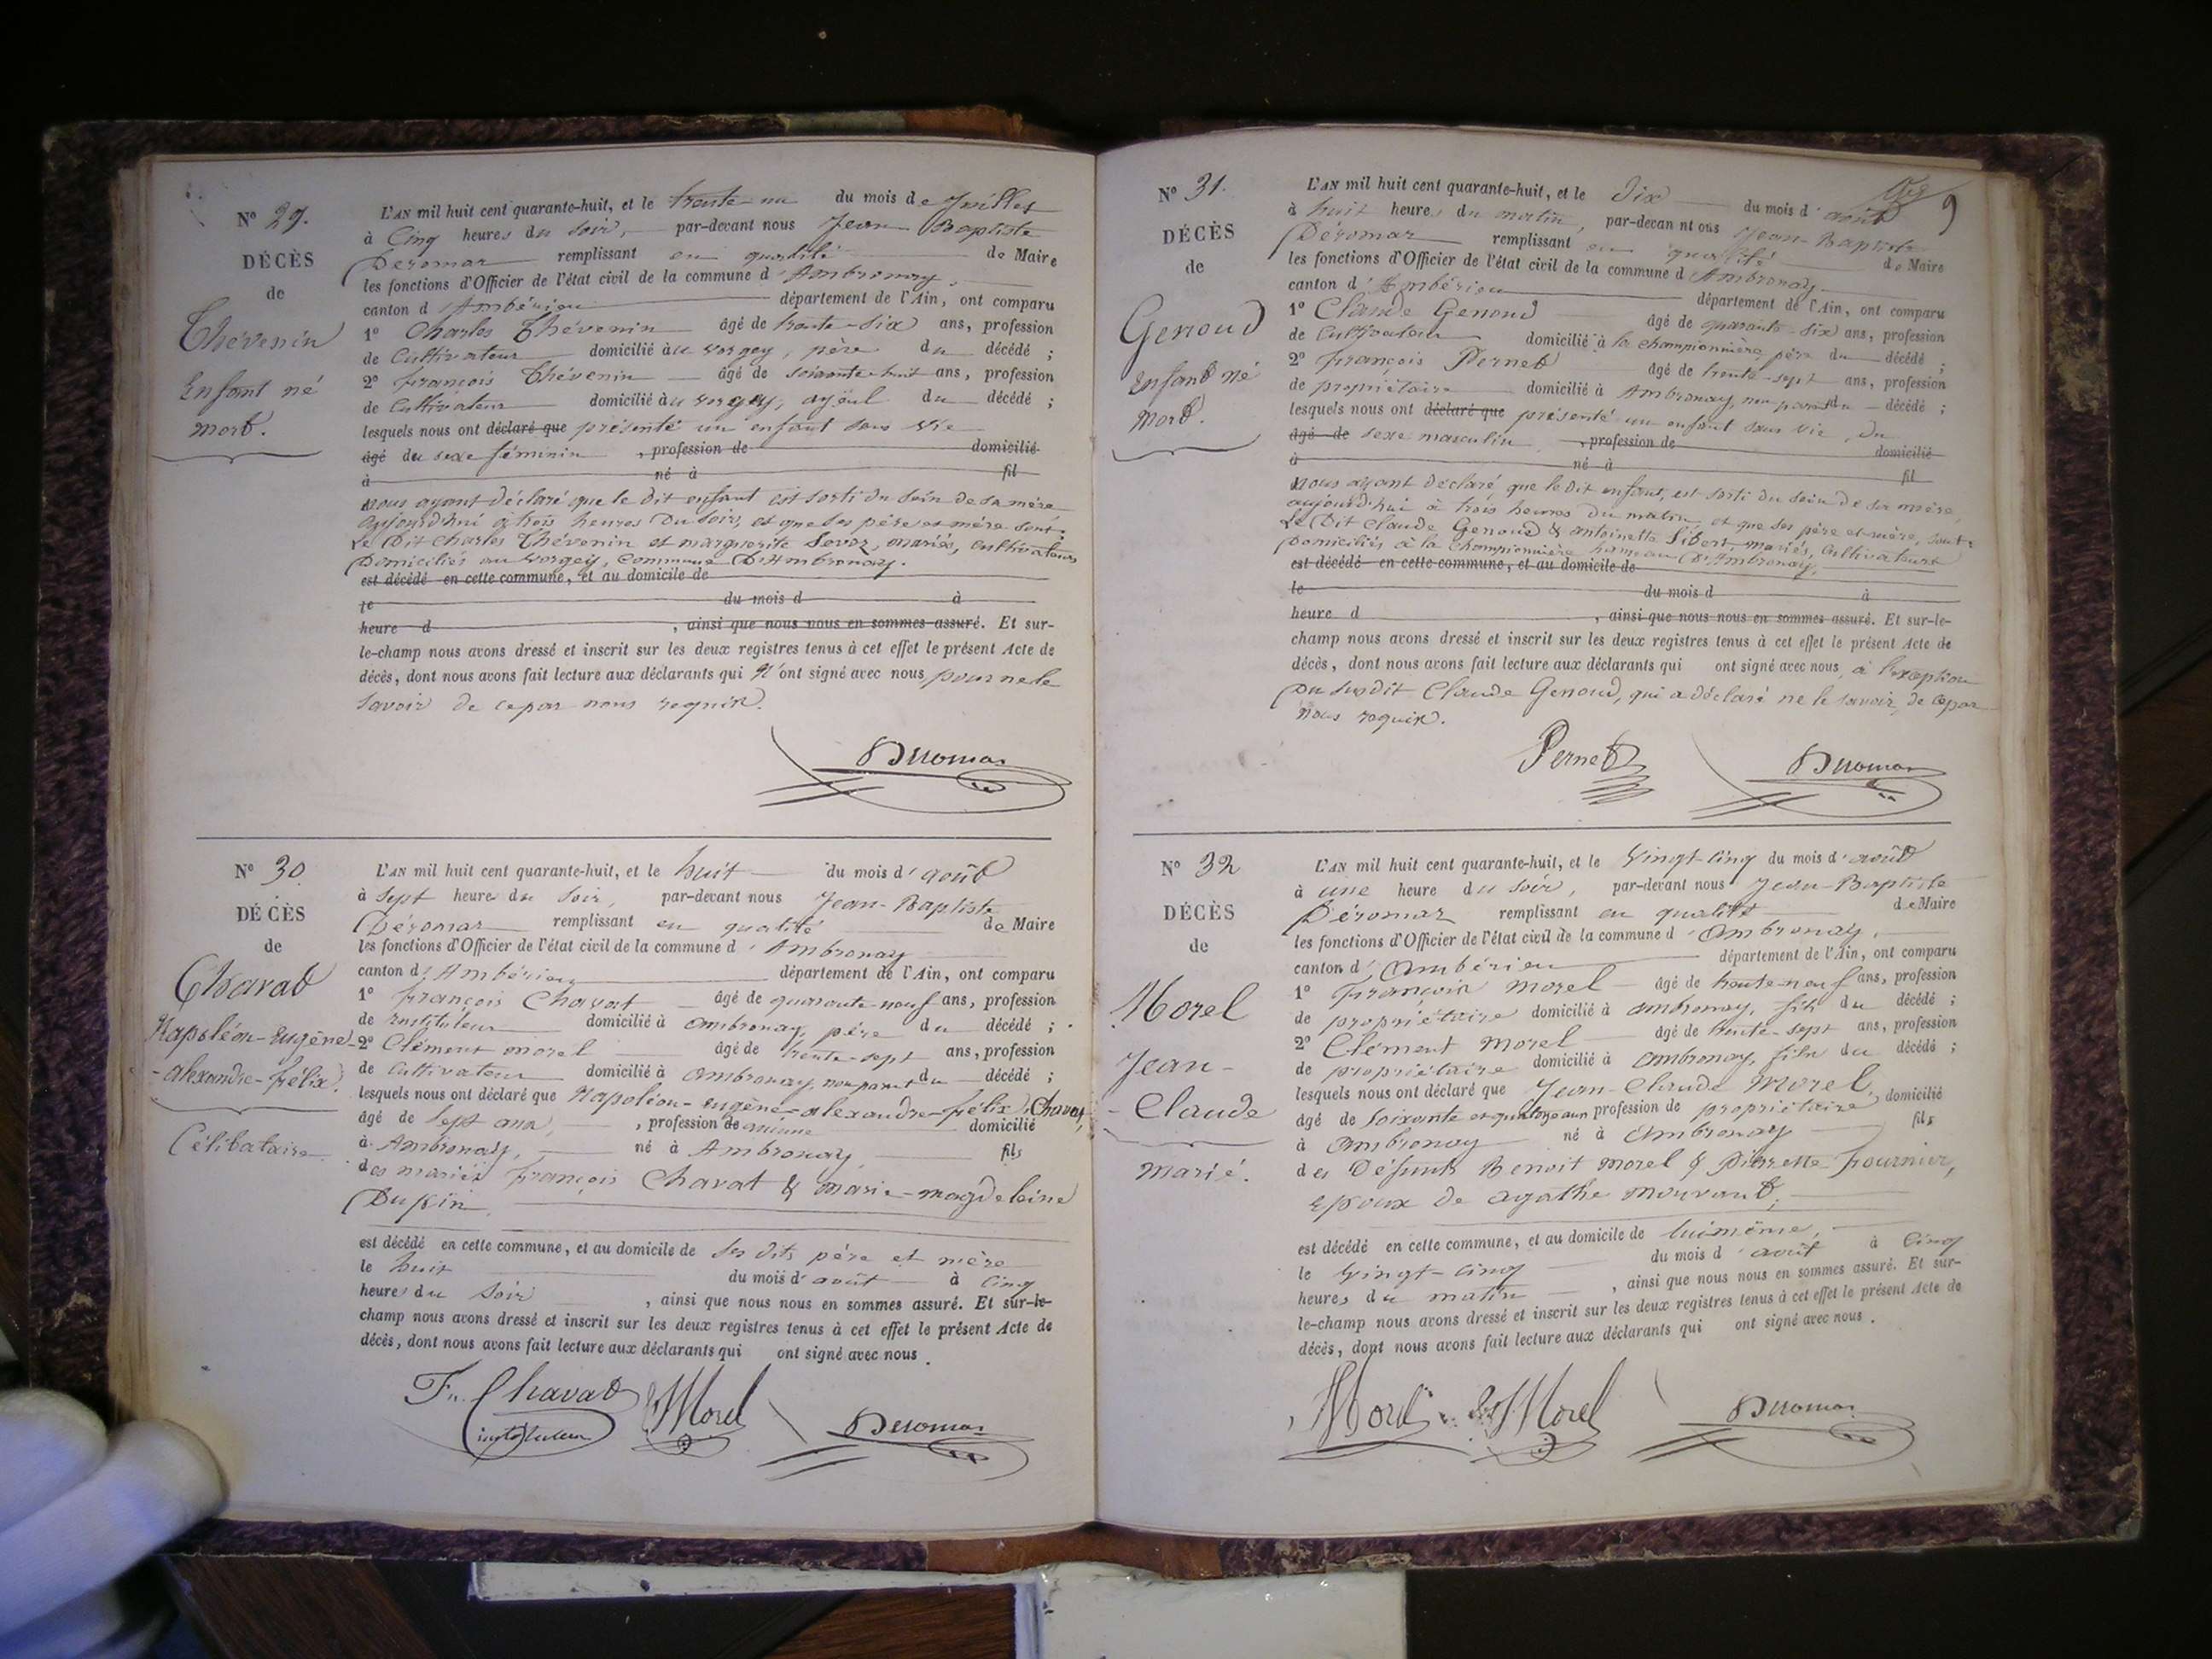 N° 29.
DÉCÈS
de
Thévenin
Enfant né
mort.
L'AN mil huit cent quarante-huit, et le trente-un du mois de Juillet
à Cinq heures du soir, par-devant nous Jean Baptiste
Déromas remplissant en qualité de Maire
les fonctions d'Officier de l'état civil de la commune d'Ambronay,
canton d'Ambérieu département de l'Ain, ont comparu
1° Charles Thévenin âgé de trente-six ans, profession
de Cultivateur domicilié au vorgey, père du décédé ;
2° François Thévenin âgé de soixante-huit ans, profession
de Cultivateur domicilié au vorgey, ayeul du décédé ;
lesquels nous ont déclaré que présenté un enfant sans vie
âgé du sexe féminin , profession de domicilié
à né à fil
nous ayant déclaré que le dit enfant est sorti du sein de sa mère
aujourd'hui à trois heures du soir, et que ses père et mère sont :
Le Dit Charles Thévenin et marguerite Savoz, mariés, cultivateurs
Domiciliés au vorgey, Commune D'Ambronay.
est décédé en cette commune, et au domicile de
le du mois d à
heure d , ainsi que nous nous en sommes assuré. Et sur-
le-champ nous avons dressé et inscrit sur les deux registres tenus à cet effet le présent Acte de
décès, dont nous avons fait lecture aux déclarants qui n'ont signé avec nous pour ne le
savoir de ce par nous requis.
Déromas
N° 30.
DÉCÈS
de
Chavat
Napoléon-Eugène-
-alexandre-félix.
Célibataire
L'AN mil huit cent quarante-huit, et le huit du mois d'août
à sept heures du soir, par-devant nous Jean-Baptiste
Déromas remplissant en qualité de Maire
les fonctions d'Officier de l'état civil de la commune d'Ambronay
canton d'Ambérieu département de l'Ain, ont comparu
1° François Chavat âgé de quarante-neuf ans, profession
de Instituteur domicilié à Ambronay, père du décédé ;
2° Clément morel âgé de trente-sept ans, profession
de Cultivateur domicilié à Ambronay, non parent du décédé ;
lesquels nous ont déclaré que Napoléon-Eugène-alexandre-félix Chavat,
âgé de sept ans, , profession de aucune domicilié
à Ambronay, né à Ambronay, fils
des mariés François Chavat & marie-magdeleine
Dupin,
est décédé en cette commune, et au domicile de ses dits père et mère
le huit du mois d'août à cinq
heures du soir , ainsi que nous nous en sommes assuré. Et sur-le-
champ nous avons dressé et inscrit sur les deux registres tenus à cet effet le présent Acte de
décès, dont nous avons fait lecture aux déclarants qui ont signé avec nous.
Fs. Chavat Morel Déromas
instituteur
9
N° 31.
DÉCÈS
de
Genoud
Enfant né
mort.
L'AN mil huit cent quarante-huit, et le Dix du mois d'août
à huit heures du matin, par-devant nous Jean-Baptiste
Déromas remplissant en qualité de Maire
les fonctions d'Officier de l'état civil de la commune d'Ambronay
canton d'Ambérieu département de l'Ain, ont comparu
1° Claude Genoud âgé de quarante-six ans, profession
de Cultivateur domicilié à la championnière, père du décédé ;
2° François Pernet âgé de trente-sept ans, profession
de propriétaire domicilié à Ambronay, non parent du décédé ;
lesquels nous ont déclaré que présenté un enfant sans vie, du
âgé de sexe masculin , profession de domicilié
à né à fil
nous ayant déclaré que le dit enfant, est sorti du sein de sa mère,
aujourd'hui à trois heures du matin et que ses père et mère, sont :
Le Dit Claude Genoud & antoinette Sibert, mariés, Cultivateurs
Domiciliés à la Championnière hameau D'Ambronay,
est décédé en cette commune, et au domicile de
le du mois d à
heure d , ainsi que nous nous en sommes assuré. Et sur-le-
champ nous avons dressé et inscrit sur les deux registres tenus à cet effet le présent Acte de
décès, dont nous avons fait lecture aux déclarants qui ont signé avec nous, à l'exception
Du susdit Claude Genoud, qui a déclaré ne le savoir, de ce par
nous requis.
Pernet Déromas
N° 32
DÉCÈS
de
Morel
Jean-
-Claude
marié.
L'AN mil huit cent quarante-huit, et le Vingt-Cinq du mois d'août
à une heure du soir, par-devant nous Jean-Baptiste
Déromas remplissant en qualité de Maire
les fonctions d'Officier de l'état civil de la commune d'Ambronay,
canton d'Ambérieu département de l'Ain, ont comparu
1° François Morel âgé de trente-neuf ans, profession
de propriétaire domicilié à Ambronay, fils du décédé ;
2° Clément Morel âgé de trente-sept ans, profession
de propriétaire domicilié à Ambronay, fils du décédé ;
lesquels nous ont déclaré que Jean-Claude Morel,
âgé de soixante et quatorze ans profession de propriétaire, domicilié
à Ambronay né à Ambronay fils
des Défunts Benoit morel & Pierrette Fournier,
Epoux de agathe mouvant,
est décédé en cette commune, et au domicile de lui même,
le Vingt-cinq du mois d'août à Cinq
heures du matin , ainsi que nous nous en sommes assuré. Et sur-
le-champ nous avons dressé et inscrit sur les deux registres tenus à cet effet le présent Acte de
décès, dont nous avons fait lecture aux déclarants qui ont signé avec nous.
Morel Morel Déromas